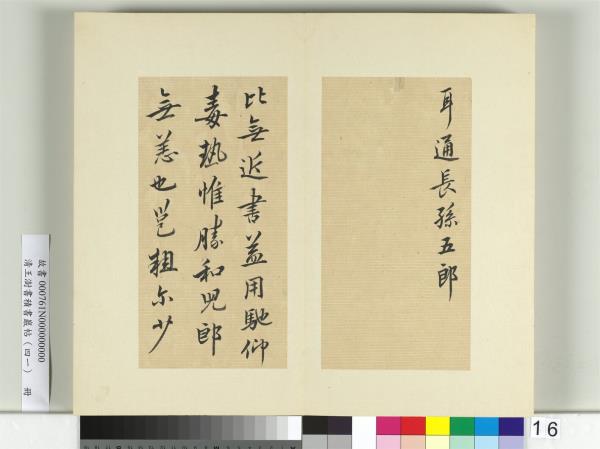 耳通長孫五郎
比無近書益用馳仰
毒熱惟勝和兒郎
無恙也邕粗尔少
故書000761N000000000
清王澍書積書巖帖(四一) 冊
16